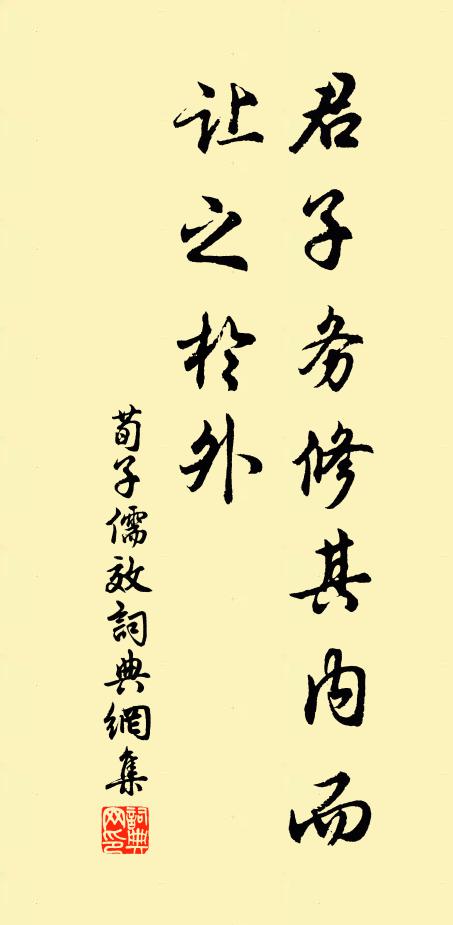 君子务修其内而
让之於外
荀子儒效詞典網集
詞典网印